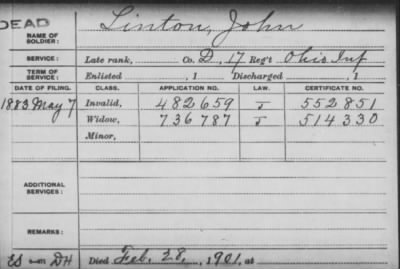 DEAD
NAME OF SOLDIER: Linton, John
SERVICE: Late rank, Co. D, 17 Reg't Ohio Inf
TERM OF SERVICE: Enlisted , 1 Discharged , 1
DATE OF FILING. CLASS. APPLICATION NO. LAW. CERTIFICATE NO.
1883 May 7 Invalid, 482659 J 552851
Widow, 736787 J 514330
Minor,
ADDITIONAL SERVICES:
REMARKS:
Died Feb. 28, 1901, at